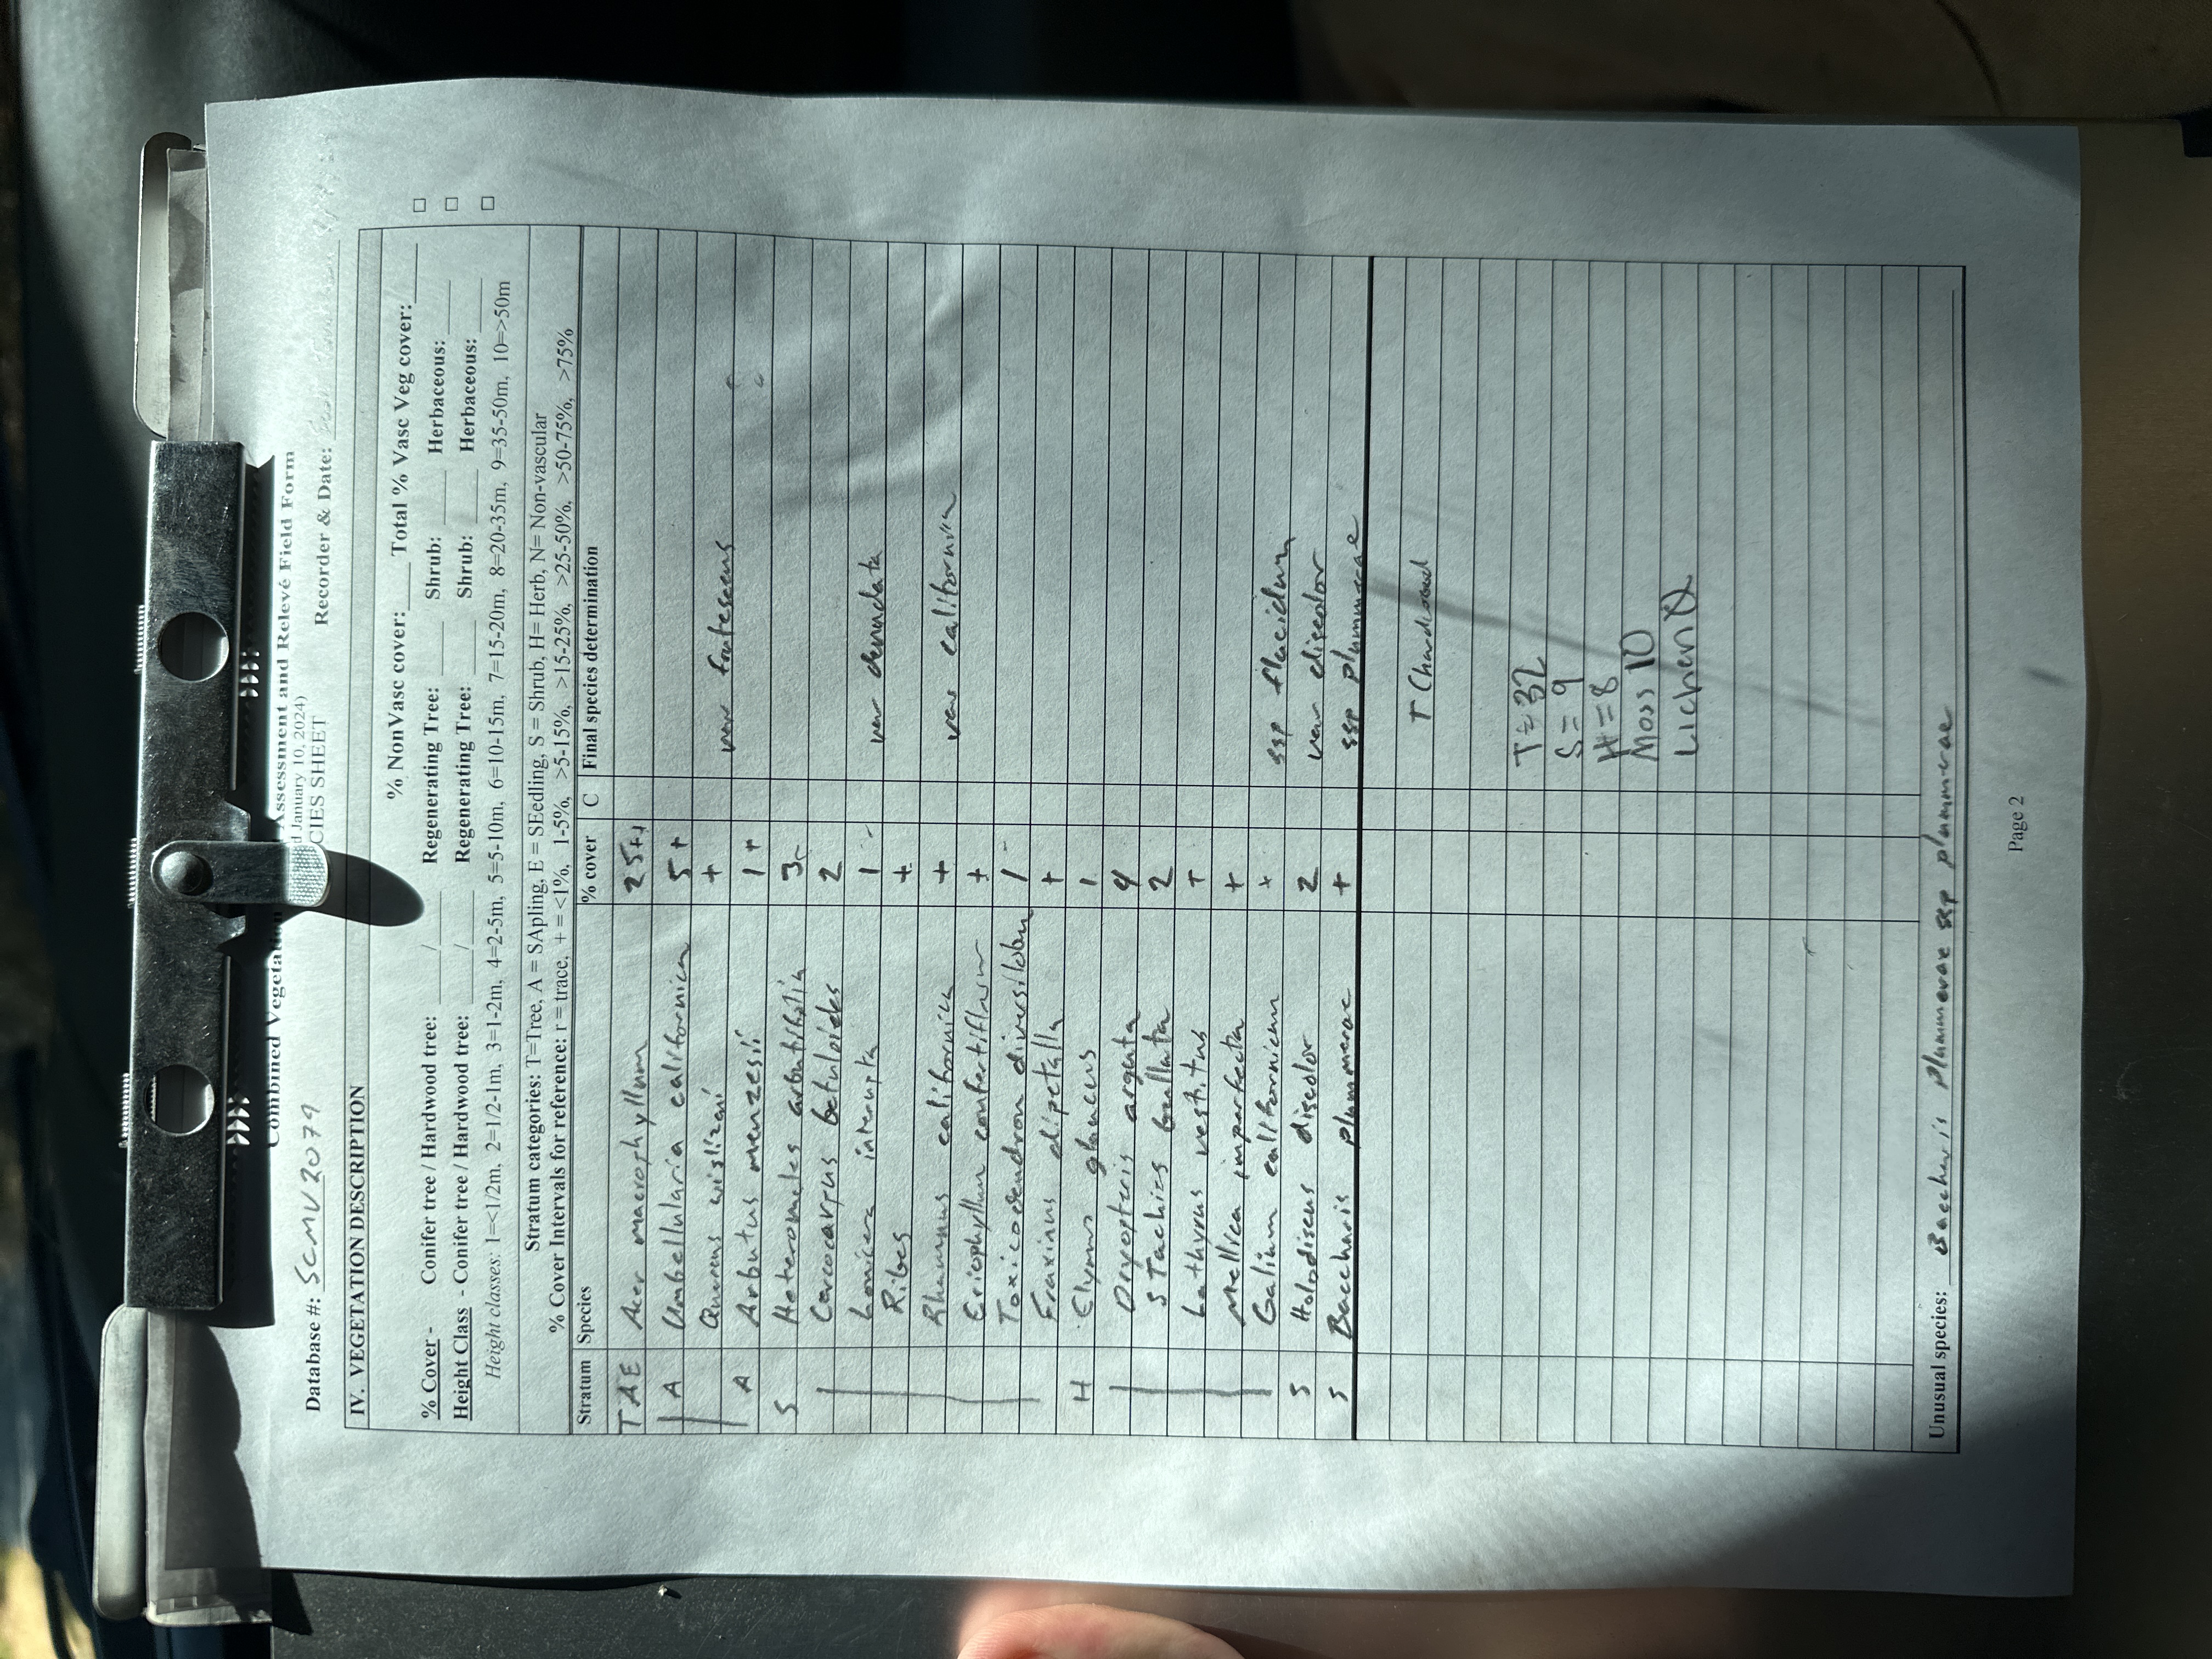 Combined Vegetation Assessment and Relevé Field Form
January 10, 2024)
CIES SHEET
Database #: SCMV2079 Recorder & Date:
IV. VEGETATION DESCRIPTION
% NonVasc cover:____ Total % Vasc Veg cover:____
% Cover - Conifer tree / Hardwood tree: ____/____ Regenerating Tree: ____ Shrub: ____ Herbaceous: ____ □
Height Class - Conifer tree / Hardwood tree: ____/____ Regenerating Tree: ____ Shrub: ____ Herbaceous: ____ □
Height classes: 1=<1/2m, 2=1/2-1m, 3=1-2m, 4=2-5m, 5=5-10m, 6=10-15m, 7=15-20m, 8=20-35m, 9=35-50m, 10=>50m
Stratum categories: T=Tree, A = SApling, E = SEedling, S = Shrub, H= Herb, N= Non-vascular
% Cover Intervals for reference: r = trace, + = <1%, 1-5%, >5-15%, >15-25%, >25-50%, >50-75%, >75%
Stratum Species % cover C Final species determination
TAE Acer macrophyllum 25++
A Umbellularia californica 5+
Quercus wislizeni + var frutescens
A Arbutus menzesii 1+
S Heteromeles arbutifolia 3-
Cercocarpus betuloides 2
Lonicera interupta 1- var denudata
Ribes +
Rhamnus californica + var californica
Eriophyllum confertiflorum +
Toxicodendron diversilobum 1-
Fraxinus dipetalla +
H Elymus glaucus 1
Dryopteris arguta 4
STachies bullata 2
Lathyrus vestitus +
Mellica imparfecta +
Galium californicum + ssp flacidum
S Holodiscus discolor 2 var discolor
S Baccharis plummerae + ssp plummerae
T=32
S=9
H=8
Moss 10
Unusual species: Baccharis plummerae ssp plummerae
Page 2